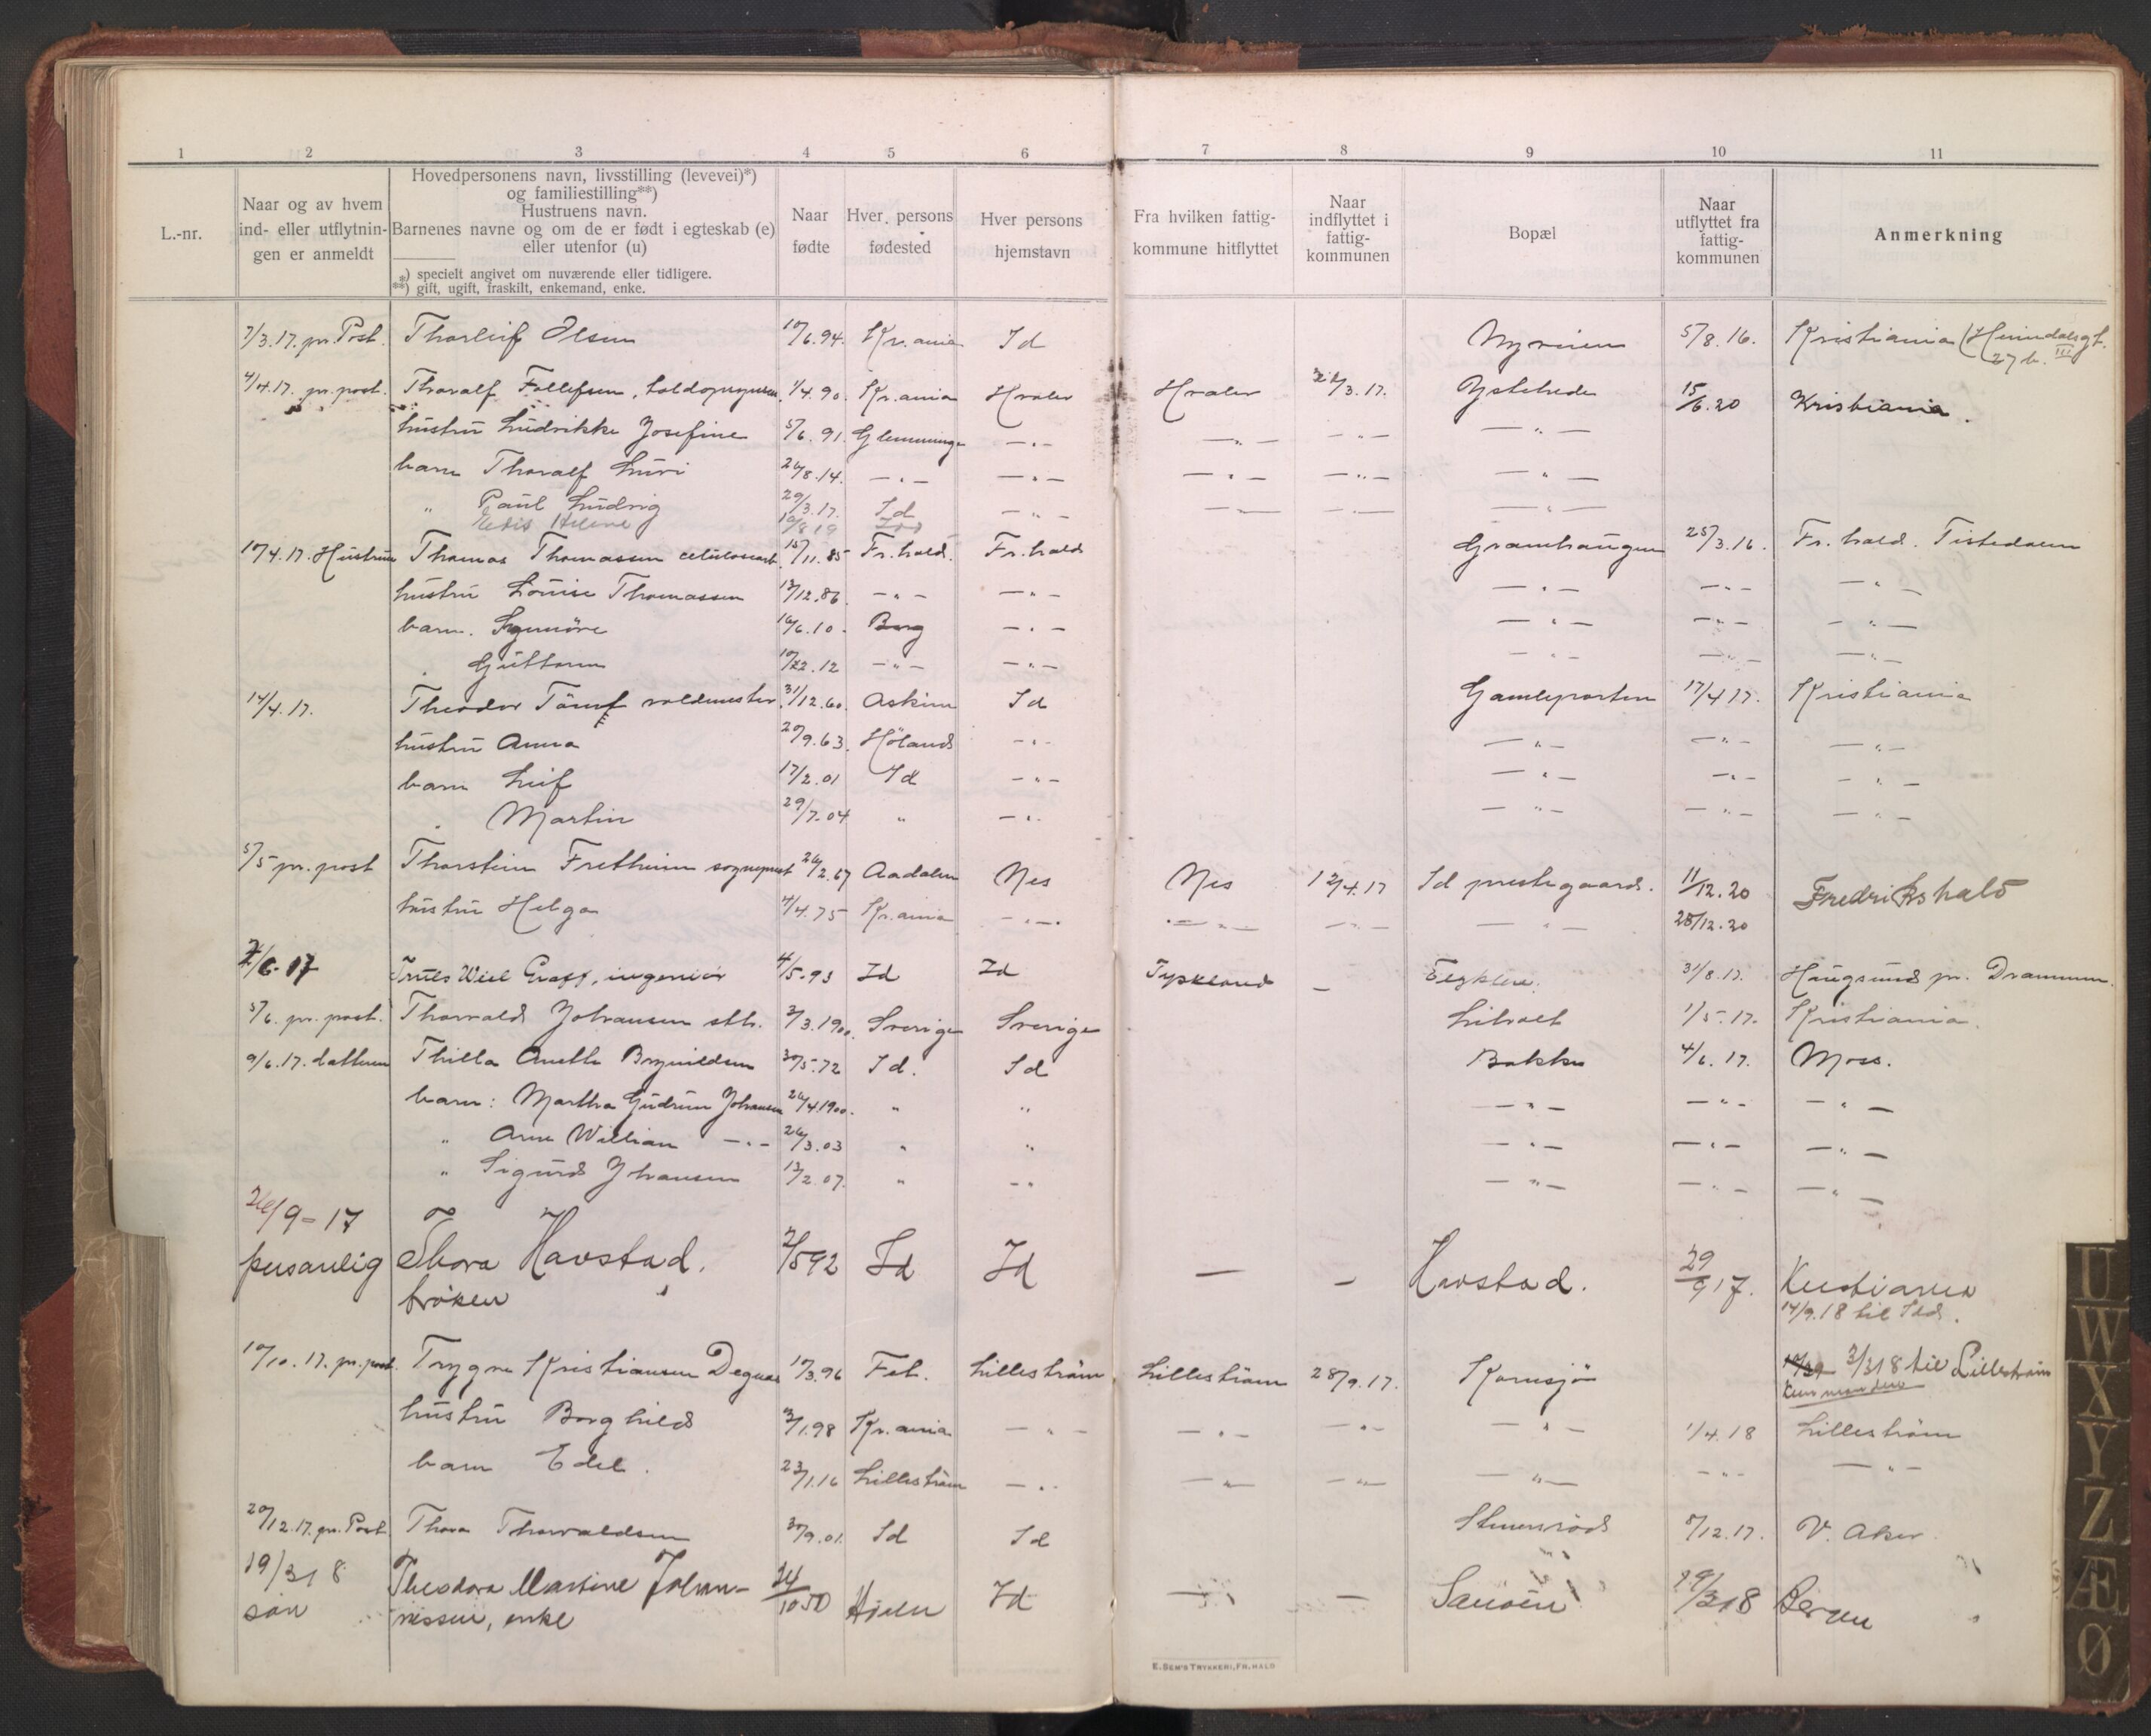 1 2 3 4 5 6 7 8 9 10 11
L.-nr.
Naar og av hvem
ind- eller utflytnin-
gen er anmeldt
Hovedpersonens navn, livsstilling (levevei)*)
og familiestilling**)
Hustruens navn.
Barnenes navne og om de er født i egteskab (e)
eller utenfor (u)
*) specielt angivet om nuværende eller tidligere.
**) gift, ugift, fraskilt, enkemand, enke.
Naar
fødte
Hver persons
fødested
Hver persons
hjemstavn
Fra hvilken fattig-
kommune hitflyttet
Naar
indflyttet i
fattig-
kommunen
Bopæl
Naar
utflyttet fra
fattig-
kommunen
Anmerkning
7/3.17. pr. Post. Thorleif Olsen 10/6.94. Kr.ania Id 5/8.16. Kristiania
27 b. III
4/4.17. pr. post. Thoralf Hvaler Hvaler 3.17. Ystehede 15/6.20 Kristiania.
hustru Ludvikke Josefine 5/6.91. Glemminge —"— —"— —"— —"—
barn Thoralf 26/8.14. —"— —"— —"— —"— —"—
" Paul Ludvig 29/3.17. Id —"— —"— —"— —"—
Helene 19
10/4.17. Hustruen Thomas Thomassen 15/11.85 Fr.hald. Fr.hald 25/3.16. Fr.hald. Tistedalen
hustru Louise Thomassen 12.86. —"— —"— —"— —"— —"—
barn. 16/6.10. Berg —"— —"— —"— —"—
Guttorm 12 —"— —"— —"— —"— —"—
14/4.17. Theodor valdmester 31/12.60. Askim Id 17/4 17. Kristiania
hustru Anna 20/9.63. Høland —"— —"— —"— —"—
barn Leif 17/2.01 Id —"— —"— —"— —"—
" Martin 29/7.04 " —"— —"— —"— —"—
5/5 pr. post Thorstein Fretheim sogneprest 26/2.67 Aadalen Nes Nes 12/4.17 Id prestegaard. 11/12.20 Fredrikshald
hustru Helga 4/4.75 Kr.ania —"— —"— —"— —"— 28/12.20
6.17 Truls Wiel Graff, ingeniør 4/5.93 Id Id Tyskland — 31/8.17. Haugsund pr. Drammen.
5/6. pr. post. Thorvald Johansen 3/3.1900. Sverige Sverige 1/5.17. Kristiania.
9/6.17. datteren Thilla Anette Brynildsen 30/5.72 Id. Id Bakke 4/6.17. Moss.
barn: Martha Gudrun Johansen 26/4.1900. " " —"— —"— —"—
" Arne William —"— 26/3.03 " " —"— —"— —"—
" Sigurd Johansen 13/2.07. " —"— —"— —"— —"—
26/9-17
personlig Thora Havstad. 2/5 92 Id Id — — Havstad. 29/9 17. Kristiania
frøken 14/9.18 til Idd.
10/10.17. pr. post. Trygve Kristiansen 10/3.96 Fet. Lillestrøm Lillestrøm 28/9.17. Kornsjø 3/3 18 til Lillestrøm
hustru Borghild 3/1.98 Kr.ania —"— —"— —"— —"— 1/4.18 Lillestrøm
barn Edel. 23/1.16 Lillestrøm —"— —"— —"— —"— —"— —"—
20/12.17. pr. Post. Thora Thorvaldsen 30/9.01. Id Id Stumrød 8/12.17. V. Aker.
19/3 18 Theodora Martine Johan- 24/10 50 Id — — 29/3 18 Bergen
søn nessen, enke
E. SEM'S TRYKKERI, FR.HALD
U
W
X
Y
Z
Æ
Ø